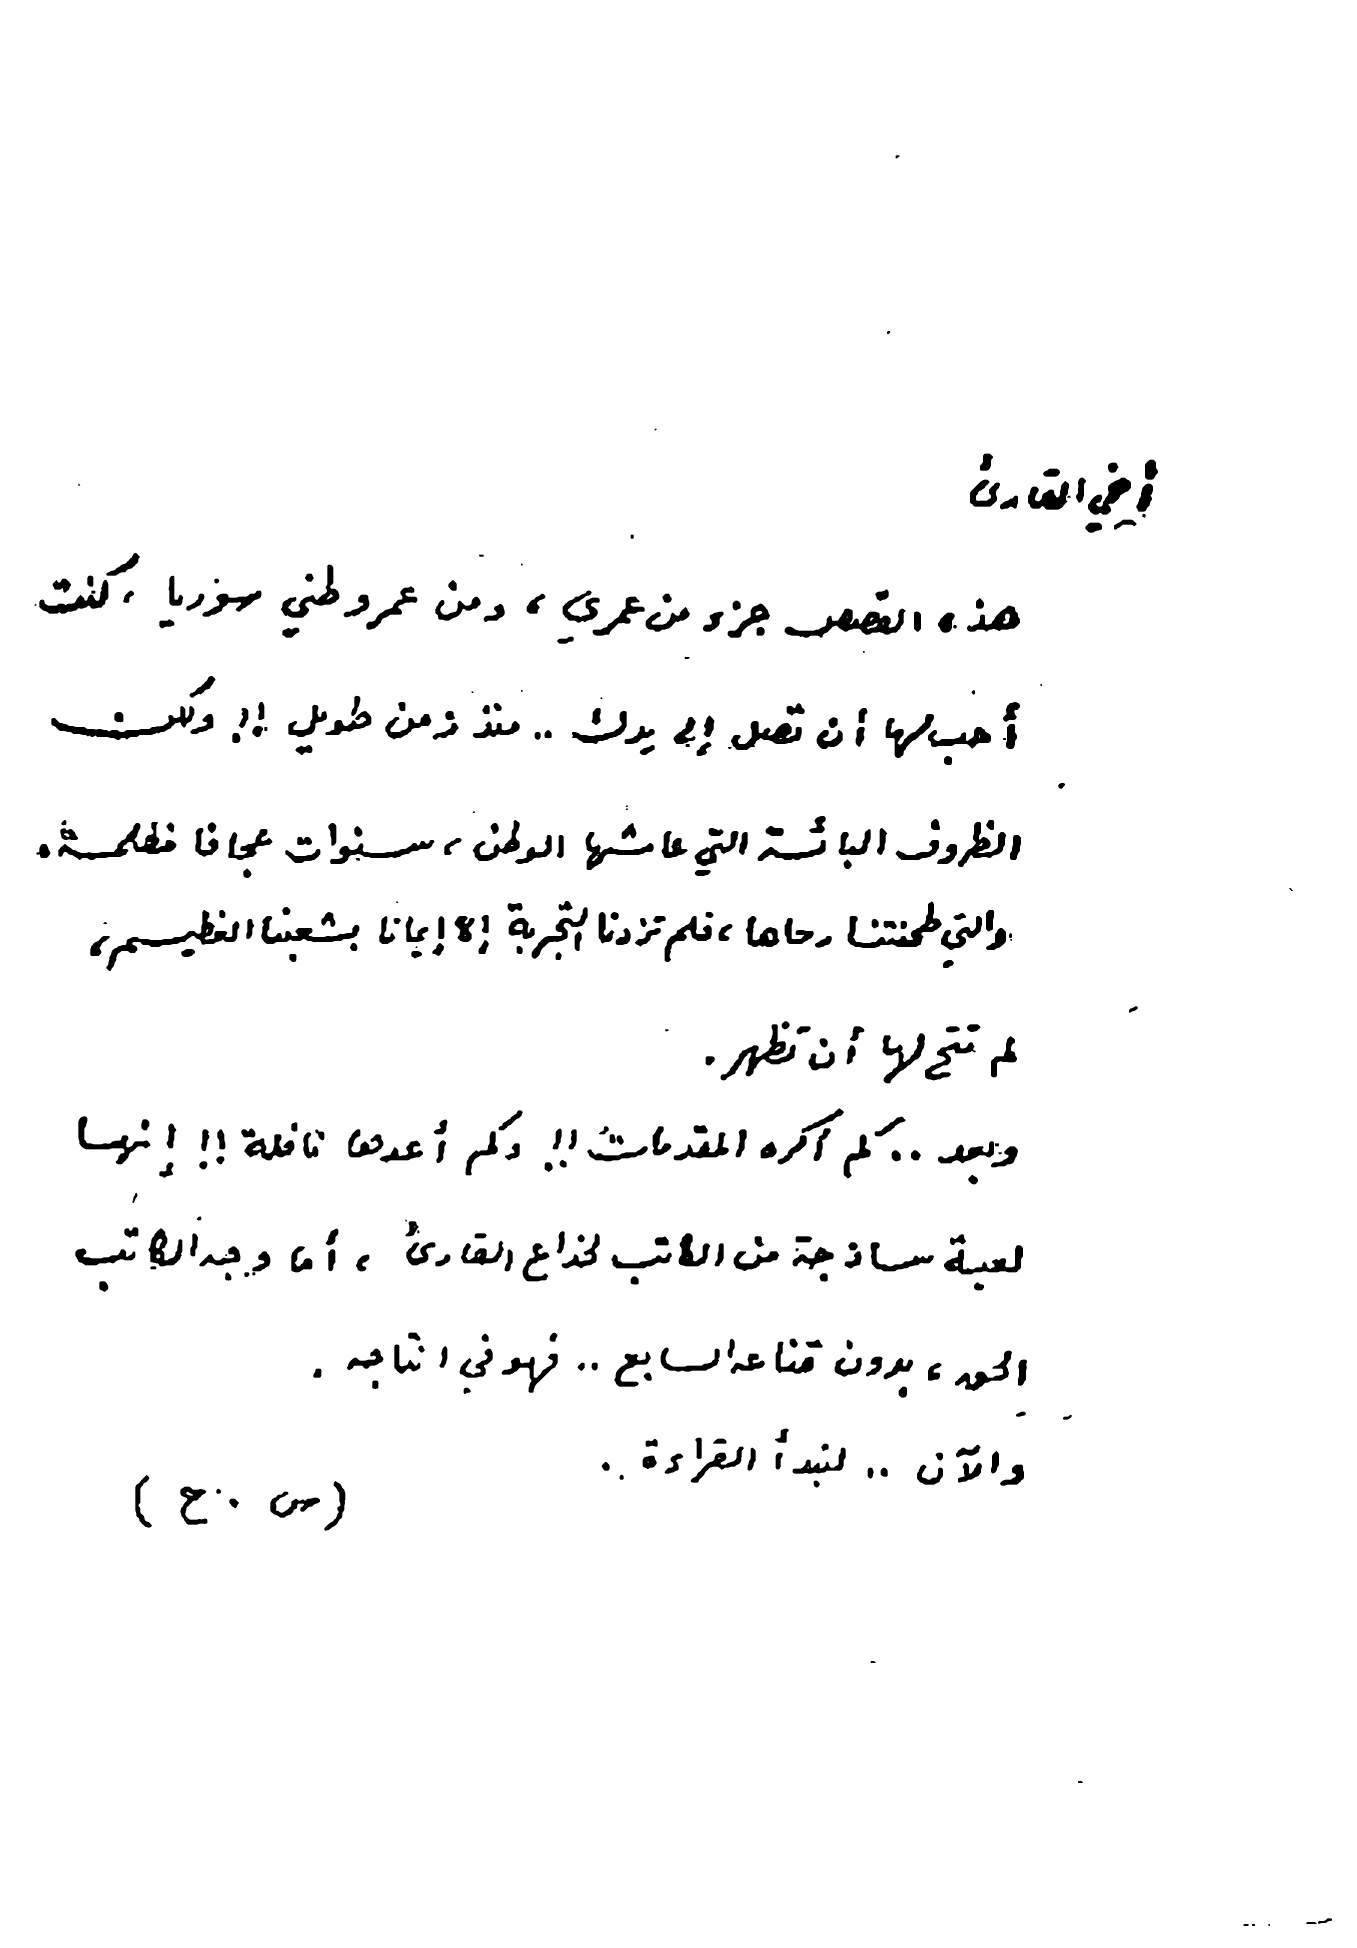 أخي القارئ
هذه القصص جزء من عمري ، ومن عمر وطني سوريا ، كنت
أحب لها أن تصل إلى يدك .. منذ زمن طويل !! ولكن
الظروف البائسة التي عاشها الوطن ، سنوات عجافا مظلمة .
والتي طحنتنا رحاها ، فلم تزدنا التجربة إلا إيمانا بشعبنا العظيم ،
لم تتح لها أن تظهر .
وبعد .. كم أكره المقدمات !! وكم أعدها نافلة !! إنها
لعبة ساذجة من الكاتب لخداع القارئ ، أما وجه الكاتب
الحق ، بدون قناعه السابغ .. فهو في انتاجه .
والآن .. لنبدأ القراءة .
( س . ح )